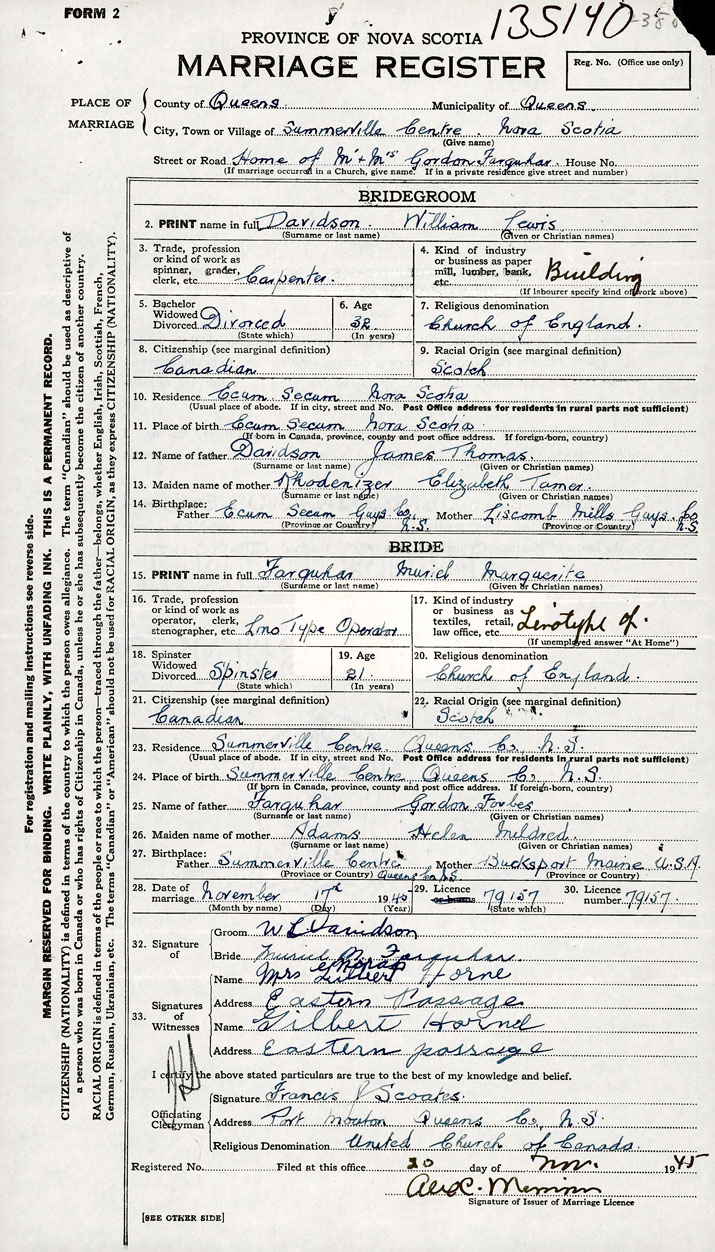 FORM 2
135140
PROVINCE OF NOVA SCOTIA
MARRIAGE REGISTER
Reg. No. (Office use only)
PLACE OF MARRIAGE
County of Queens Municipality of Queens
City, Town or Village of Summerville Centre. Nova Scotia
(Give name)
Street or Road Home of Mr + Mrs Gordon Farquhar House No.
(If marriage occurred in a Church, give name. If in a private residence give street and number)
BRIDEGROOM
2. PRINT name in full Davidson William Lewis
(Surname or last name) (Given or Christian names)
3. Trade, profession or kind of work as spinner, grader, clerk, etc. Carpenter.
4. Kind of industry or business as paper mill, lumber, bank, etc. Building
(If labourer specify kind of work above)
5. Bachelor Widowed Divorced Divorced
(State which)
6. Age 32
(In years)
7. Religious denomination
Church of England.
8. Citizenship (see marginal definition)
Canadian
9. Racial Origin (see marginal definition)
Scotch
10. Residence Ecum Secum Nova Scotia
(Usual place of abode. If in city, street and No. Post Office address for residents in rural parts not sufficient)
11. Place of birth Ecum Secum Nova Scotia
(If born in Canada, province, county and post office address. If foreign-born, country)
12. Name of father Davidson James Thomas.
(Surname or last name) (Given or Christian names)
13. Maiden name of mother Rhodenizer Elizabeth Tamer.
(Surname or last name) (Given or Christian names)
14. Birthplace:
Father Ecum Secum Guys Co. N.S. Mother Liscomb Mills Guys. Co N.S.
(Province or Country) (Province or Country)
BRIDE
15. PRINT name in full Farquhar Muriel Marguerite
(Surname or last name) (Given or Christian names)
16. Trade, profession or kind of work as operator, clerk, stenographer, etc. Lino Type Operator
17. Kind of industry or business as textiles, retail, law office, etc. Linotype op.
(If unemployed answer "At Home")
18. Spinster Widowed Divorced Spinster
(State which)
19. Age 21
(In years)
20. Religious denomination
Church of England.
21. Citizenship (see marginal definition)
Canadian
22. Racial Origin (see marginal definition)
Scotch
23. Residence Summerville Centre Queens Co. N.S.
(Usual place of abode. If in city, street and No. Post Office address for residents in rural parts not sufficient)
24. Place of birth Summerville Centre, Queens Co. N.S.
(If born in Canada, province, county and post office address. If foreign-born, country)
25. Name of father Farquhar Gordon Forbes
(Surname or last name) (Given or Christian names)
26. Maiden name of mother Adams Helen Mildred.
(Surname or last name) (Given or Christian names)
27. Birthplace:
Father Summerville Centre Mother Bucksport Maine U.S.A.
(Province or Country) Queens Co N.S. (Province or Country)
28. Date of marriage November 17th 1945
(Month by name) (Day) (Year)
29. Licence or banns 79157
(State which)
30. Licence number 79157.
32. Signature of
Groom W L Davidson
Bride Muriel M. Farquhar.
33. Signatures of Witnesses
Name Mrs Gilbert Horne
Address Eastern Passage
Name Gilbert Horne
Address Eastern passage
I certify the above stated particulars are true to the best of my knowledge and belief.
Officiating Clergyman
Signature Francis Scoates.
Address Port Mouton Queens Co, N.S.
Religious Denomination United Church of Canada.
Registered No. Filed at this office 20 day of Nov. 1945
Signature of Issuer of Marriage Licence
[SEE OTHER SIDE]
For registration and mailing instructions see reverse side.
MARGIN RESERVED FOR BINDING. WRITE PLAINLY, WITH UNFADING INK. THIS IS A PERMANENT RECORD.
CITIZENSHIP (NATIONALITY) is defined in terms of the country to which the person owes allegiance. The term "Canadian" should be used as descriptive of
a person who was born in Canada or who has rights of Citizenship in Canada, unless he or she has subsequently become the citizen of another country.
RACIAL ORIGIN is defined in terms of the people or race to which the person—traced through the father—belongs, whether English, Irish, Scottish, French,
German, Russian, Ukrainian, etc. The terms "Canadian" or "American" should not be used for RACIAL ORIGIN, as they express CITIZENSHIP (NATIONALITY).